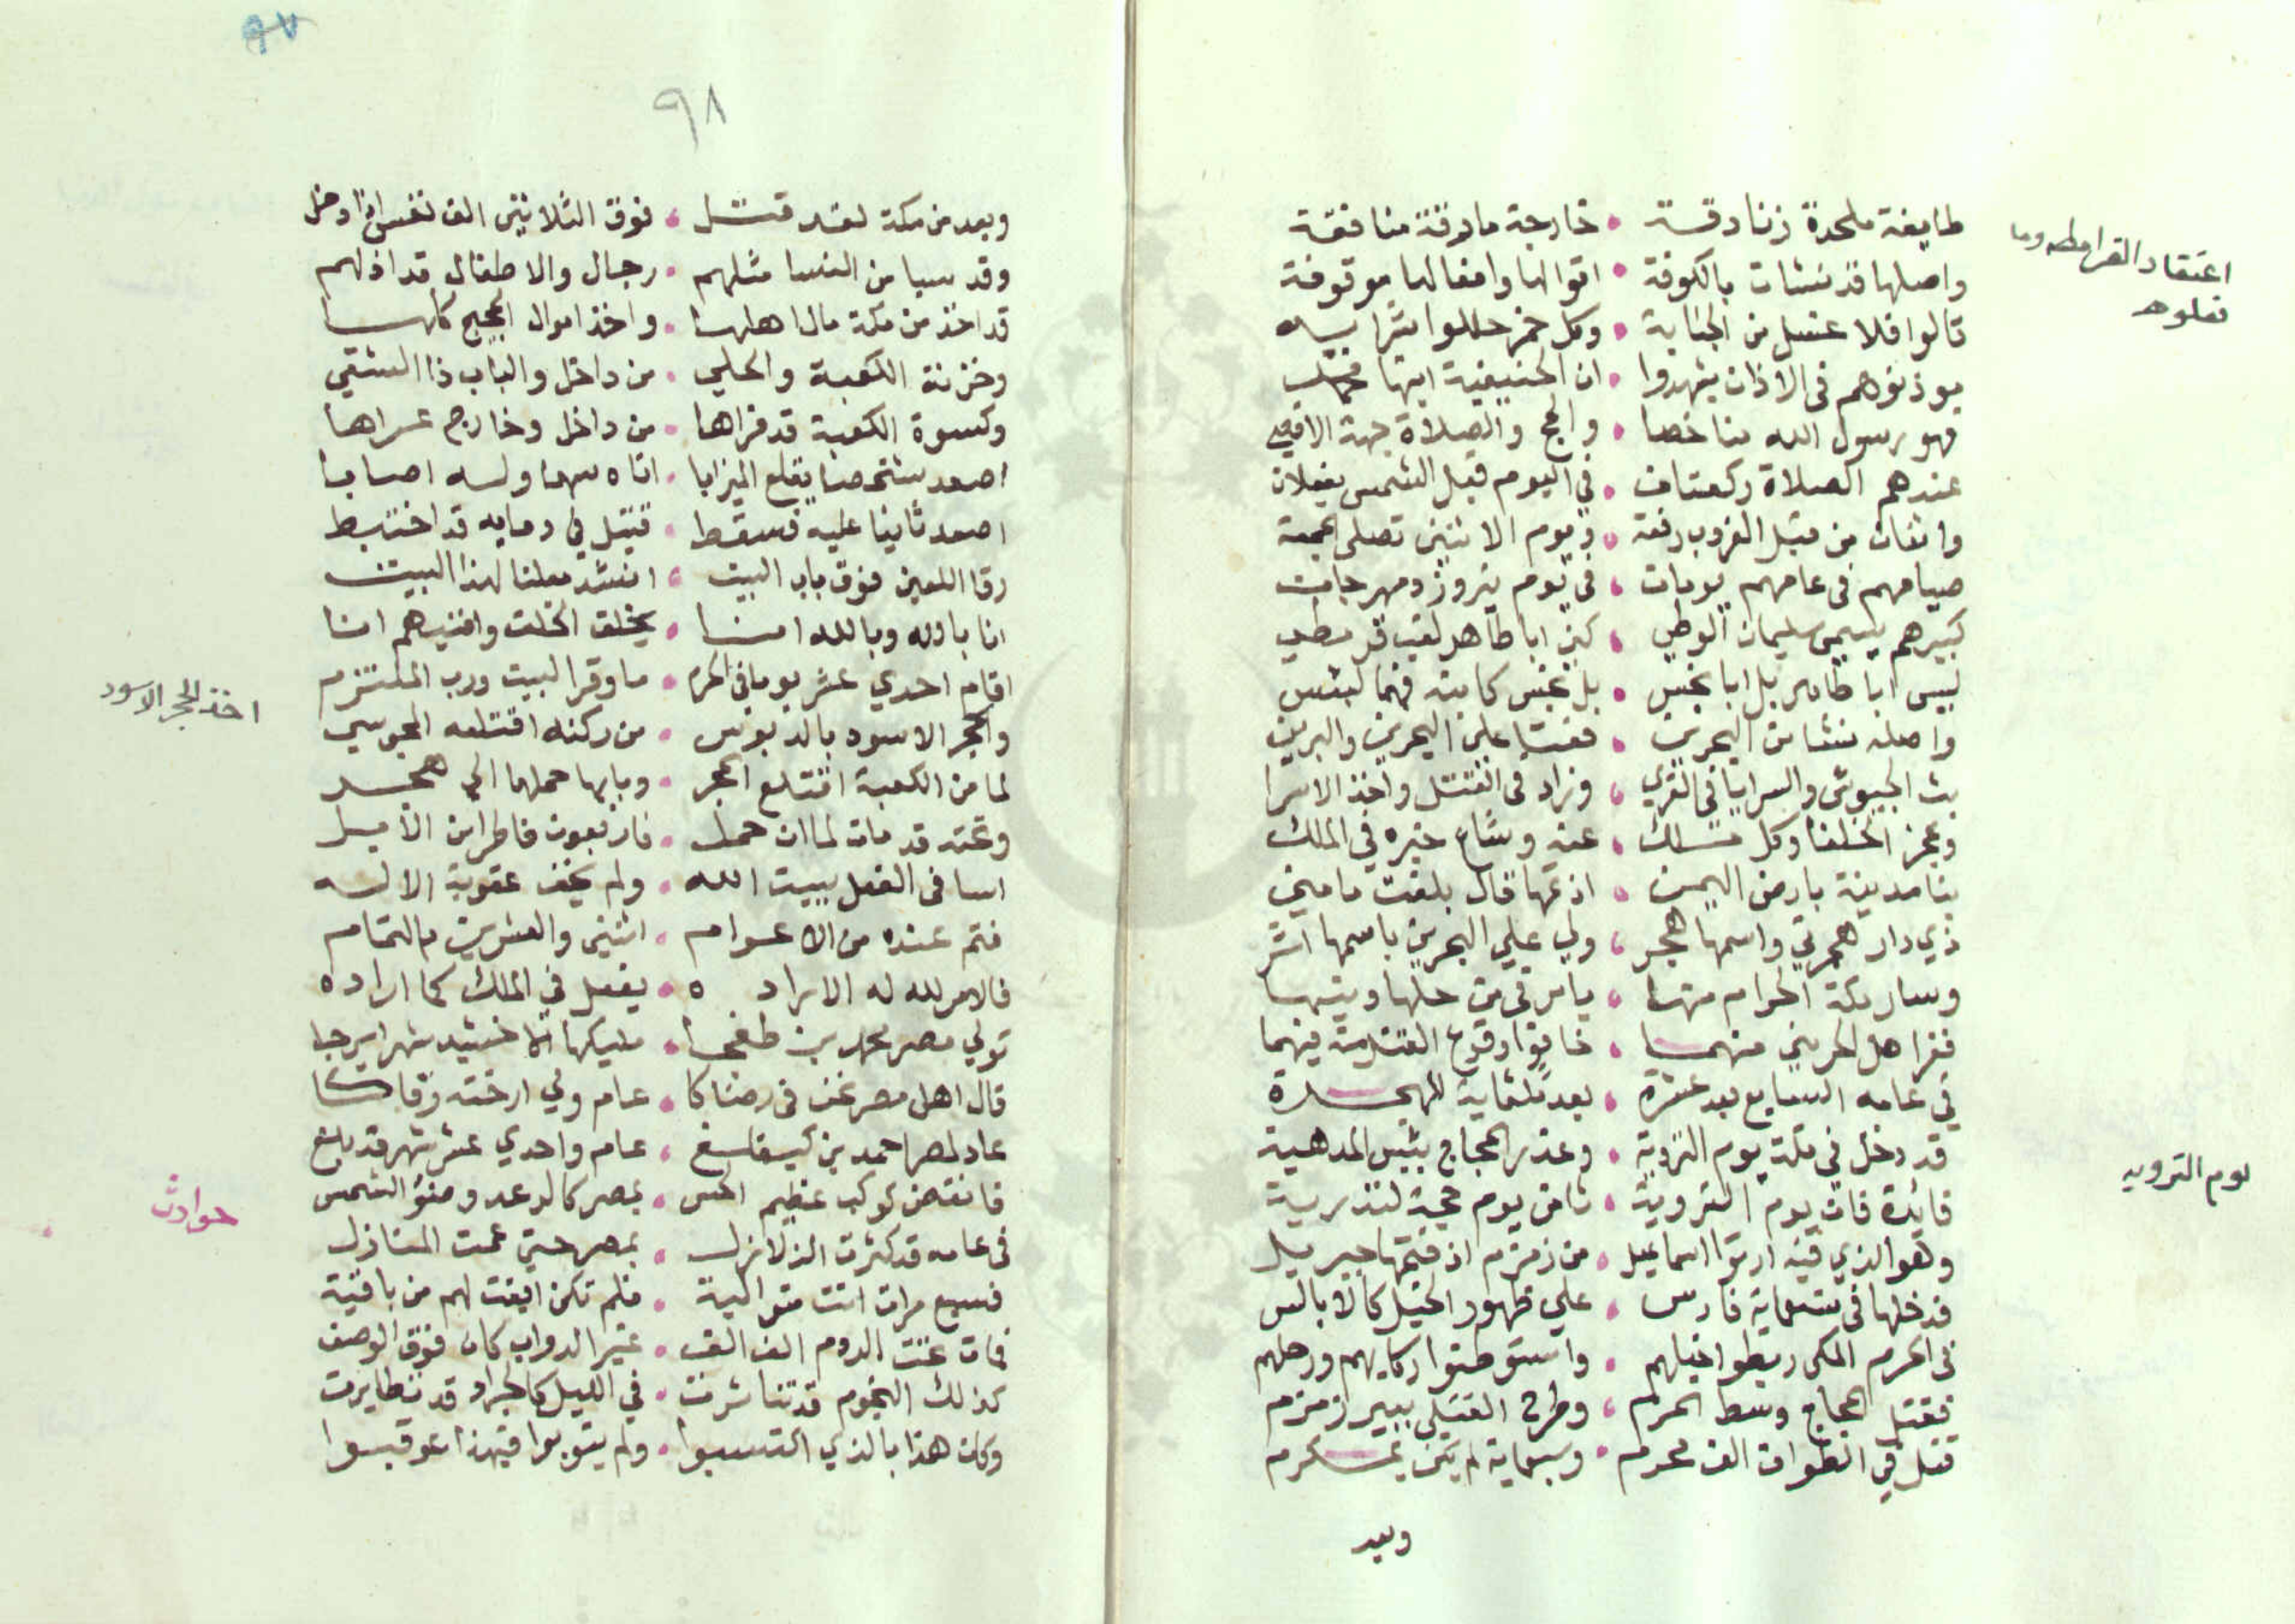 طايفة ملحدة زنادقة • خارجة مارقة منافقة
اعتقاد القرامطه وما
فعلوه
واصلها قد نشات بالكوفة • اقوالها وافعالها موقوفة
قالوا فلا غسل من الجنابة • وكل خمر حللوا شرابه
يوذنوهم في الاذان يشهدوا • ان الحنيفية ابنها
فهو رسول الله منا خصا • والحج والصلاة جهة الاقصى
عندهم الصلاة ركعتان • في اليوم قبل الشمس يفعلان
واثنان من قبل الغروب رفعة • ويوم الاثنين تصلى الجمعة
صيامهم في عامهم يومان • في يوم نيروز ومهرجان
كبيرهم يسمى سليمان الوطي • كني ابا طاهر لقب قرمطي
ليس ابا طاهر بل ابا نجس • بل نجس كانه فيما لبس
واصله نشا من البحرين • فعثا على البحرين والبرين
بث الجيوش والسرايا في القرى • وزاد في القتل واخذ الاسرا
وعجز الخلفا وكل • عنه وشاع خبره في الملك
بنا مدينة بارض اليمن • اذ تمها قال بلغت مامني
ذي دار هجرتي واسمها هجر • ولي على البحرين باسمها اشر
وسار مكة الحرام منها • يامر في من حلها وينهى
ففر اهل الحرمين منهما • خافوا وقوع القتل منه فيهما
في عامه السابع بعد عشرة • بعد ثلثماية للهجرة
قد دخل في مكة يوم التروية • وغدر الحجاج بئيس المدهية
يوم الترويه
فائدة فان يوم التروية • ثامن يوم حجة لتدرية
وهو الذي فيه ارتوا اسماعيل • من زمزم اذ فتمها جبريل
فدخلها في ستماية فارس • على ظهور الخيل كالابالس
في الحرم المكي ربطوا خيلهم • واستوطنوا ركايبهم ورحلهم
فقتل الحجاج وسط الحرم • وطرح القتلى ببير زمزم
قتل في الطواف الف محرم • وسبعماية لم يكن بمسكرم
وبعد
٩٧
٩٨
وبعد من مكة لقد قتل • فوق الثلاثين الف نفس اذ دخل
وقد سبا من النسا مثلهم • رجال والاطفال قد اذلهم
قد اخذ من مكة مال اهلها • واخذ اموال الحجيج كلها
وخزنة الكعبة والحلي • من داخل والباب ذا الشقي
وكسوة الكعبة قد فراها • من داخل وخارج عراها
اصعد شخصا يقلع الميزابا • اتاه سهما وله اصابا
اصعد ثانيا عليه فسقط • قتيل في دمايه قد اختبط
رقا اللعين فوق باب البيت • انشد معلنا لهذا البيت
انا بالله وبالله انا • يخلق الخلق وافنيهم انا
اقام احدي عشر يوما في الحرم • ما وقر البيت ورب الملتزم
اخذ الحجر الاسود
والحجر الاسود بالدبوس • من ركنه اقتلعه المجوسي
لما من الكعبة اقتلع الحجر • وبابها حملها الى هجر
وتحته قد مات لما ان حمل • فاربعون فاطرا من الابل
اسا في الفعل ببيت الله • ولم يخف عقوبة الاله
فتم عنده من الاعوام • اثنين والعشرين بالتمام
فالامر لله له الاراده • يفعل في الملك كما اراده
تولي مصر محمد بن طغجا • مليكها الاخشيد شهرا يرجا
قال اهل مصر نحن في رضاكا • عام ولي ارخته وقاكا
عاد لمصر احمد بن كيغلغ • عام واحدي عشر شهر قد بلغ
حوادث
فانقض كوكب عظيم الحس • بمصر كالرعد وضوء الشمس
في عامه قد كثرت الزلازل • بمصر حتي عمت المنازل
فسبع مرات اتت متوالية • فلم تكن ابقت لهم من باقية
فمات تحت الردم الف الف • غير الدواب كان فوق الوصف
كذلك النجوم قد تناثرت • في الليل كالجراد قد تطايرت
وكان هذا بالذي اكتسبوا • ولم يتوبوا فبهذا عوقبوا